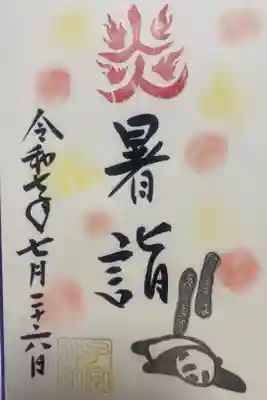 炎
暑
詣
令和七年七月二十六日